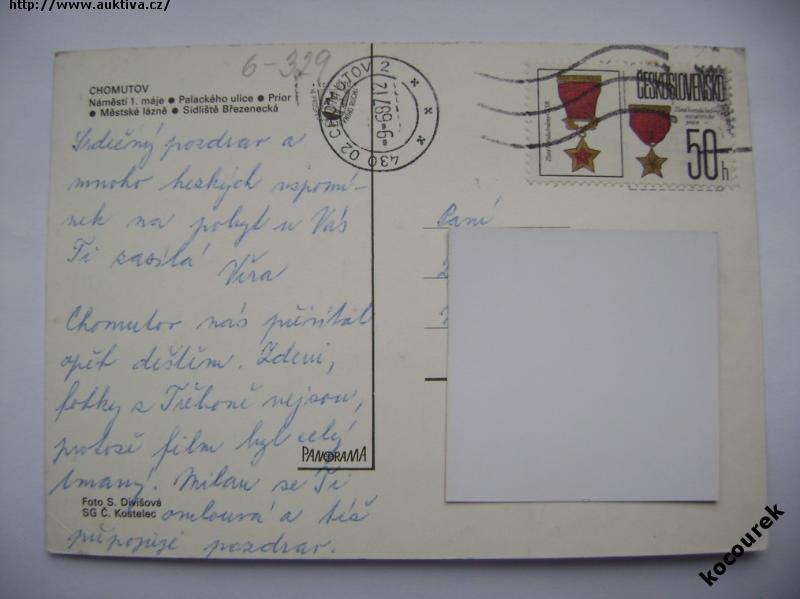 http://www.auktiva.cz/
6-329
CHOMUTOV
Náměstí 1. máje ● Palackého ulice ● Prior
● Městské lázně ● Sídliště Březenecká
430 02 CHOMUTOV 2
ČESKOSLOVENSKO
50h
Srdečný pozdrav a
mnoho hezkých vzpomí-
nek na pobyt u Vás
Ti zasílá Věra
Chomutov nás přivítal
opět deštěm. Zdeni,
fotky z Třeboně nejsou,
protože film byl celý
tmavý. Milan se Ti
omlouvá a též
připojuje pozdrav.
Paní
PANORAMA
Foto S. Divišová
SG Č. Kostelec
kocourek